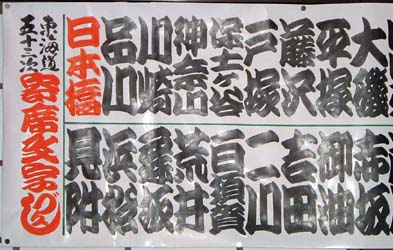 東海道
五十三次
寄席文字
日本橋
品川
川崎
神奈川
保土ヶ谷
戸塚
藤沢
平塚
大磯
見附
浜松
舞坂
荒井
白須賀
二川
吉田
御油
赤坂